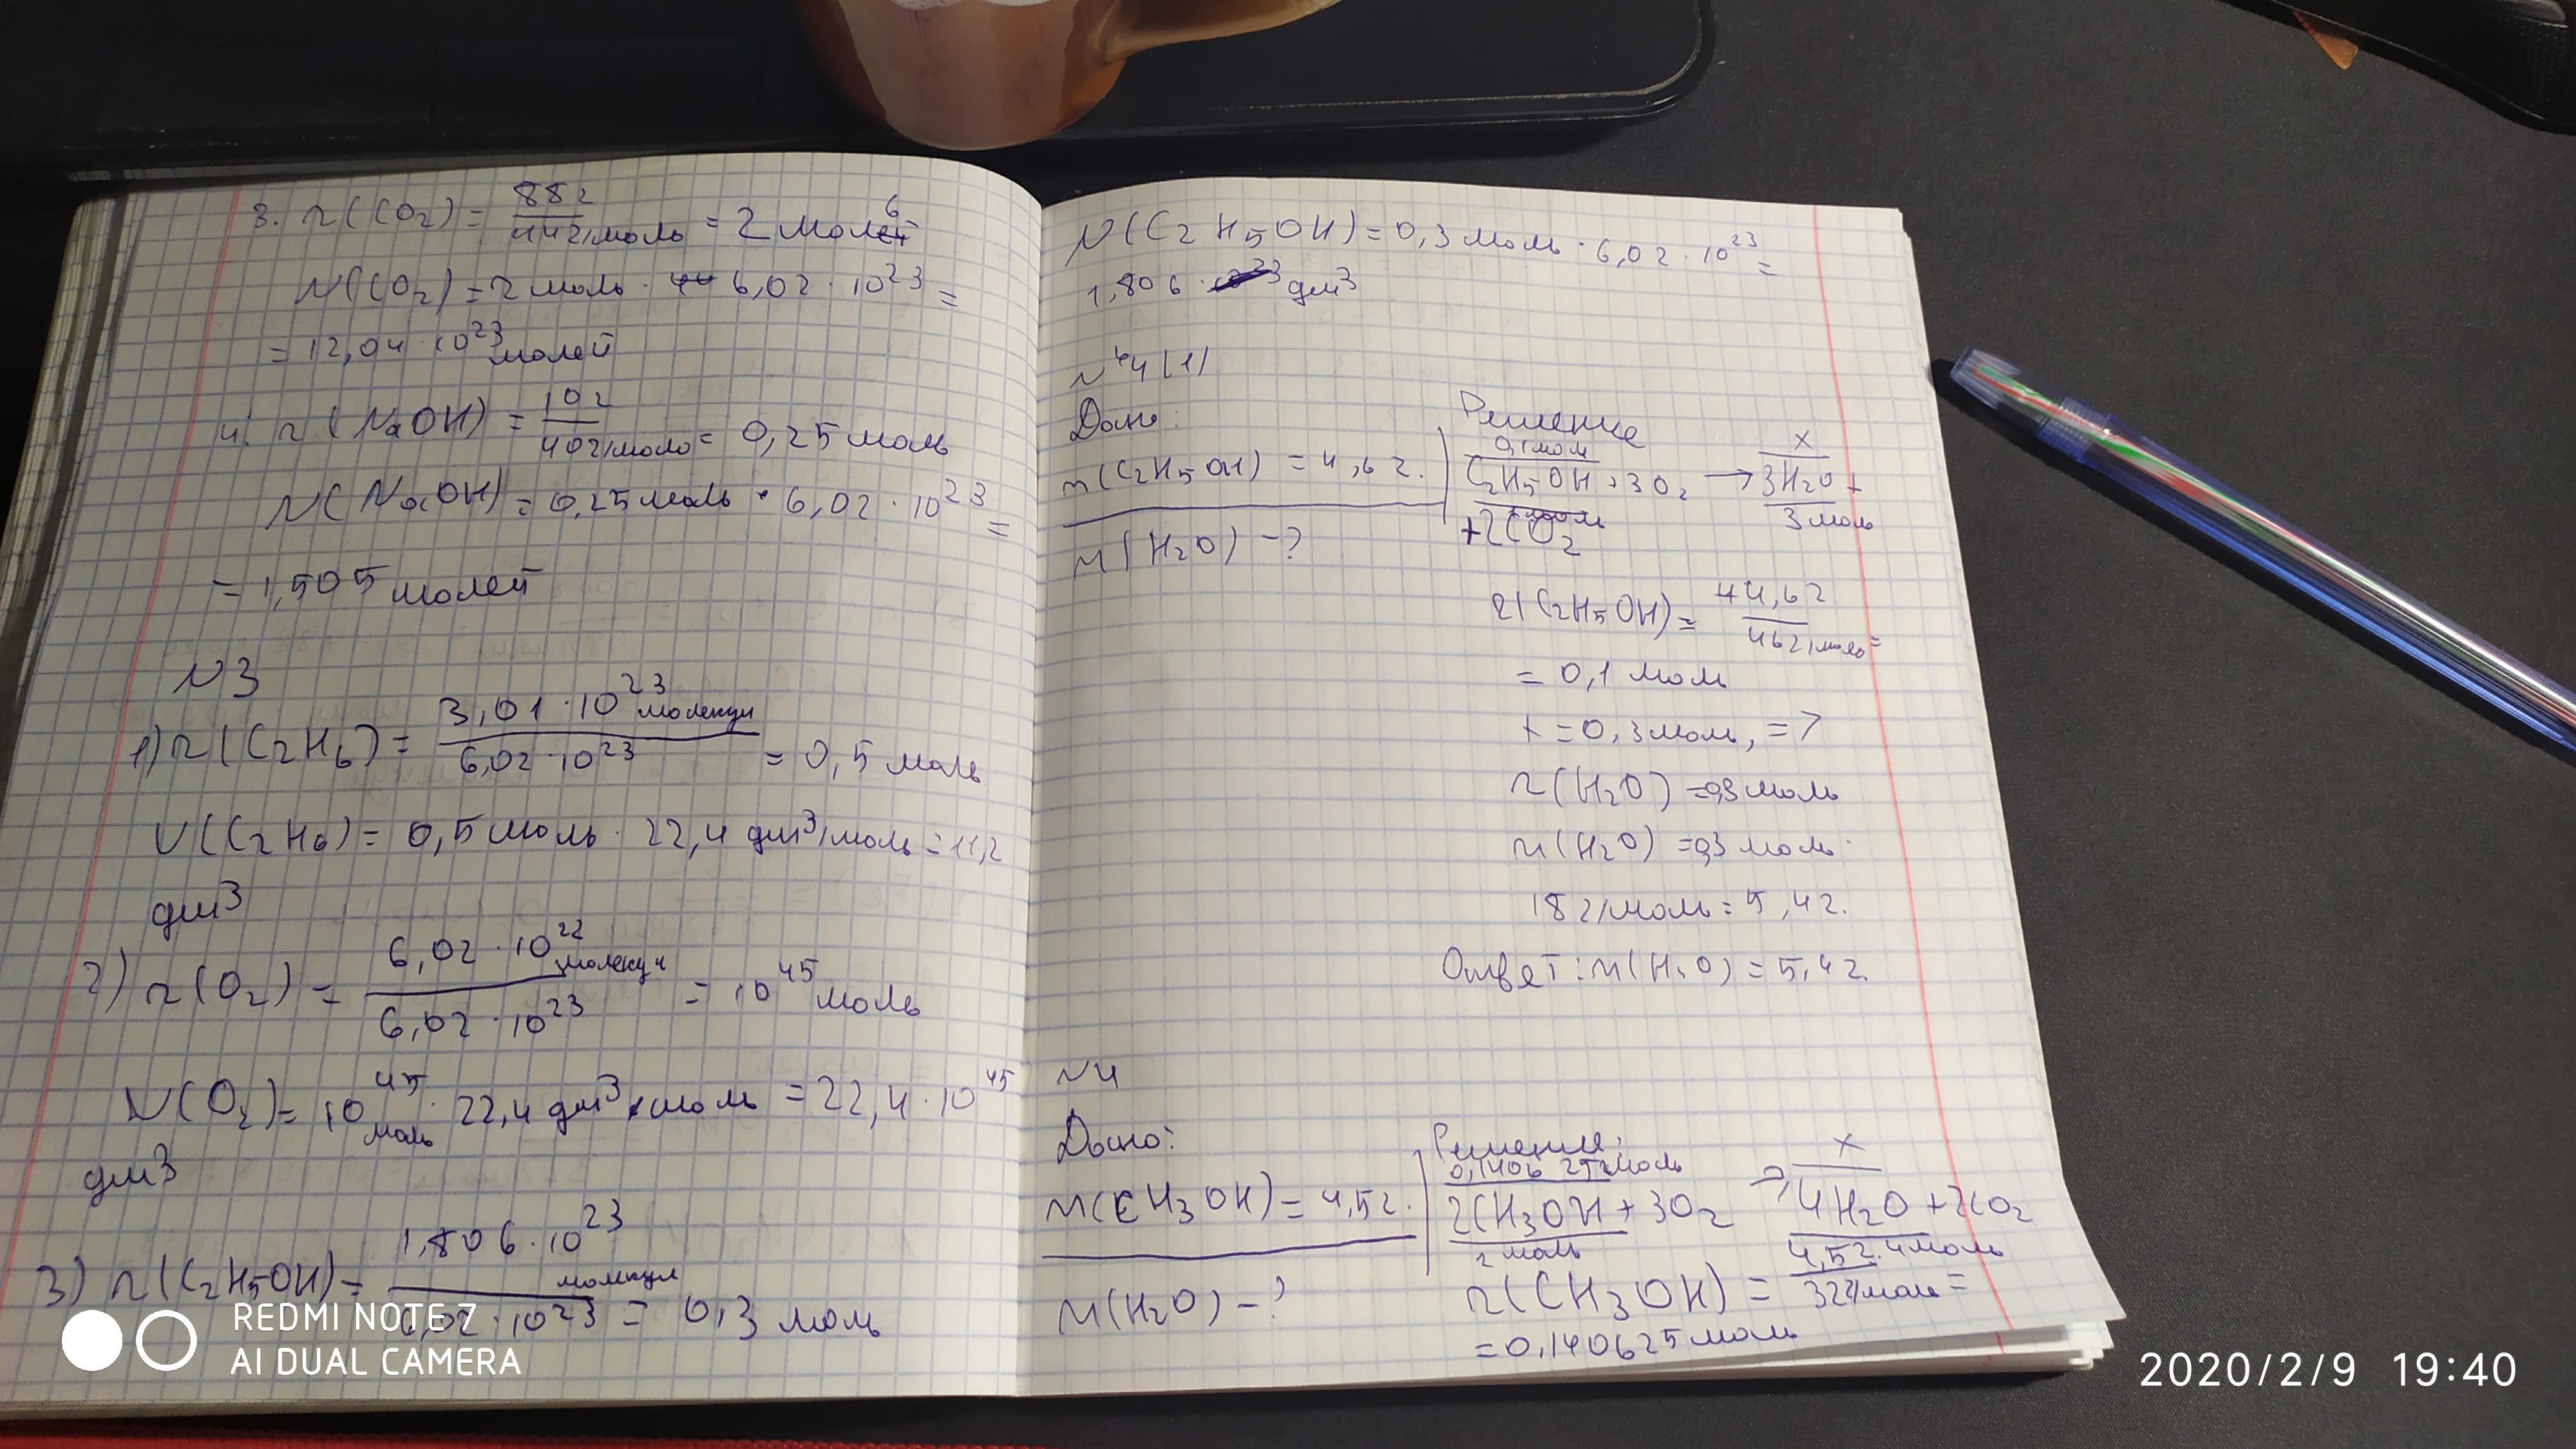 3. n(CO2) = 88г / 44г/моль = 2 моль
N(CO2) = 2 моль · 6,02 · 10^23 =
= 12,04 · 10^23 молей
4. n(NaOH) = 10г / 40г/моль = 0,25 моль
N(NaOH) = 0,25 моль · 6,02 · 10^23 =
= 1,505 молей
N3
1) n(C2H6) = 3,01 · 10^23 молекул / 6,02 · 10^23 = 0,5 моль
V(C2H6) = 0,5 моль · 22,4 дм3/моль = 11,2
дм3
2) n(O2) = 6,02 · 10^22 молекул / 6,02 · 10^23 = 10^45 моль
N(O2) = 10^45 моль · 22,4 дм3/моль = 22,4 · 10^45
дм3
3) n(C2H5OH) = 1,806 · 10^23 молекул / 6,02 · 10^23 = 0,3 моль
N(C2H5OH) = 0,3 моль · 6,02 · 10^23 =
1,806 · дм3
N 4(1)
Дано:
Решение
m(C2H5OH) = 4,6г.
0,1 моль x
C2H5OH + 3O2 → 3H2O +
3 моль
+2CO2
m(H2O) - ?
n(C2H5OH) = 4,6г / 46г/моль =
= 0,1 моль
x = 0,3 моль, =>
n(H2O) = 0,3 моль
m(H2O) = 0,3 моль ·
18г/моль = 5,4г.
Ответ: m(H2O) = 5,4г.
N4
Дано:
Решение:
m(CH3OH) = 4,5г.
0,140625 моль x
2CH3OH + 3O2 → 4H2O + 2CO2
2 моль 4 моль
m(H2O) - ?
n(CH3OH) = 4,5г. / 32г/моль =
= 0,140625 моль
REDMI NOTE 7
AI DUAL CAMERA
2020/2/9 19:40